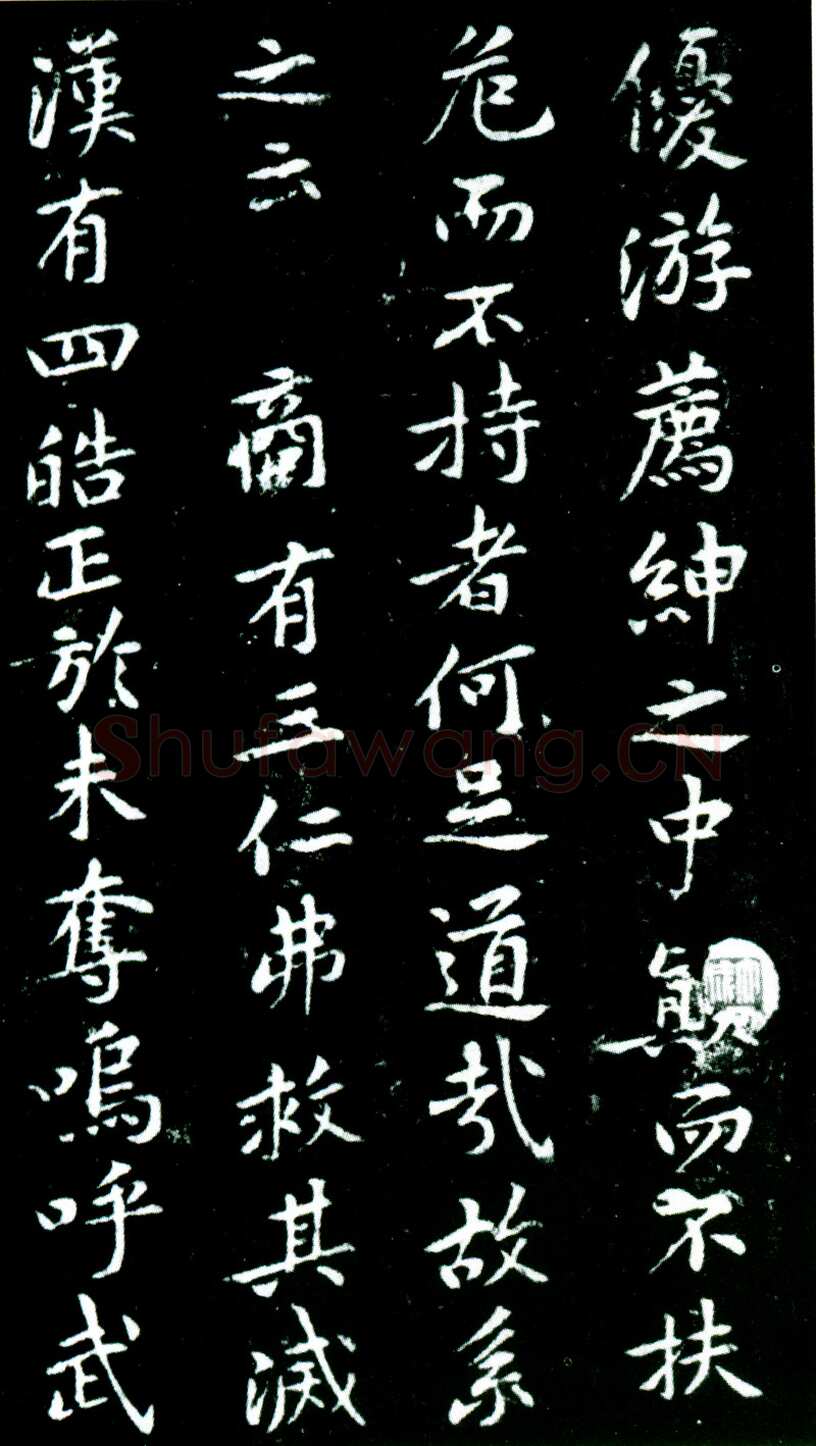 優游薦紳之中顛而不扶
危而不持者何足道哉故系
之云 商有三仁弗救其滅
漢有四皓正於未奪嗚呼武
Shufawang.CN